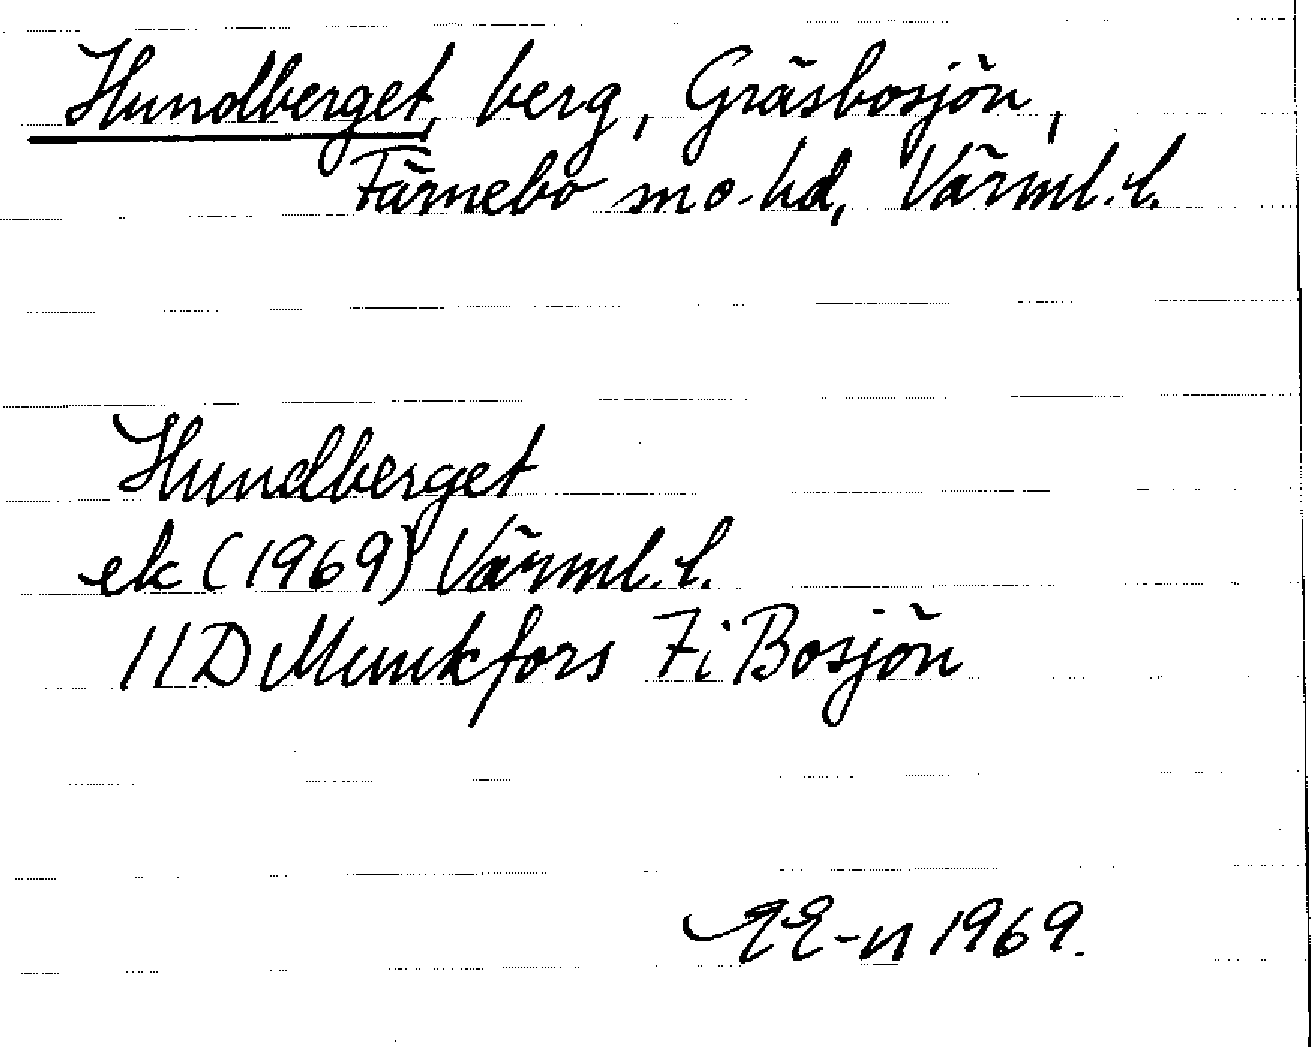 Hundberget, berg, Gräsbosjön,
Färnebo sn o. hd, Värml. l.
Hundberget
ek (1969) Värml. l.
11D Munkfors 7i Bosjön
EE-n 1969.